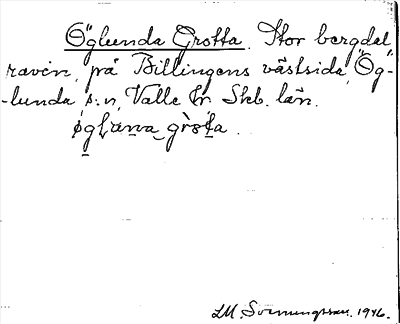 Öglunda Grotta. Stor bergdal
ravin, på Billingens västsida, Ög-
-lunda s:n, Valle hr Skb. län.
grò
LM. Svenungsson. 1946.